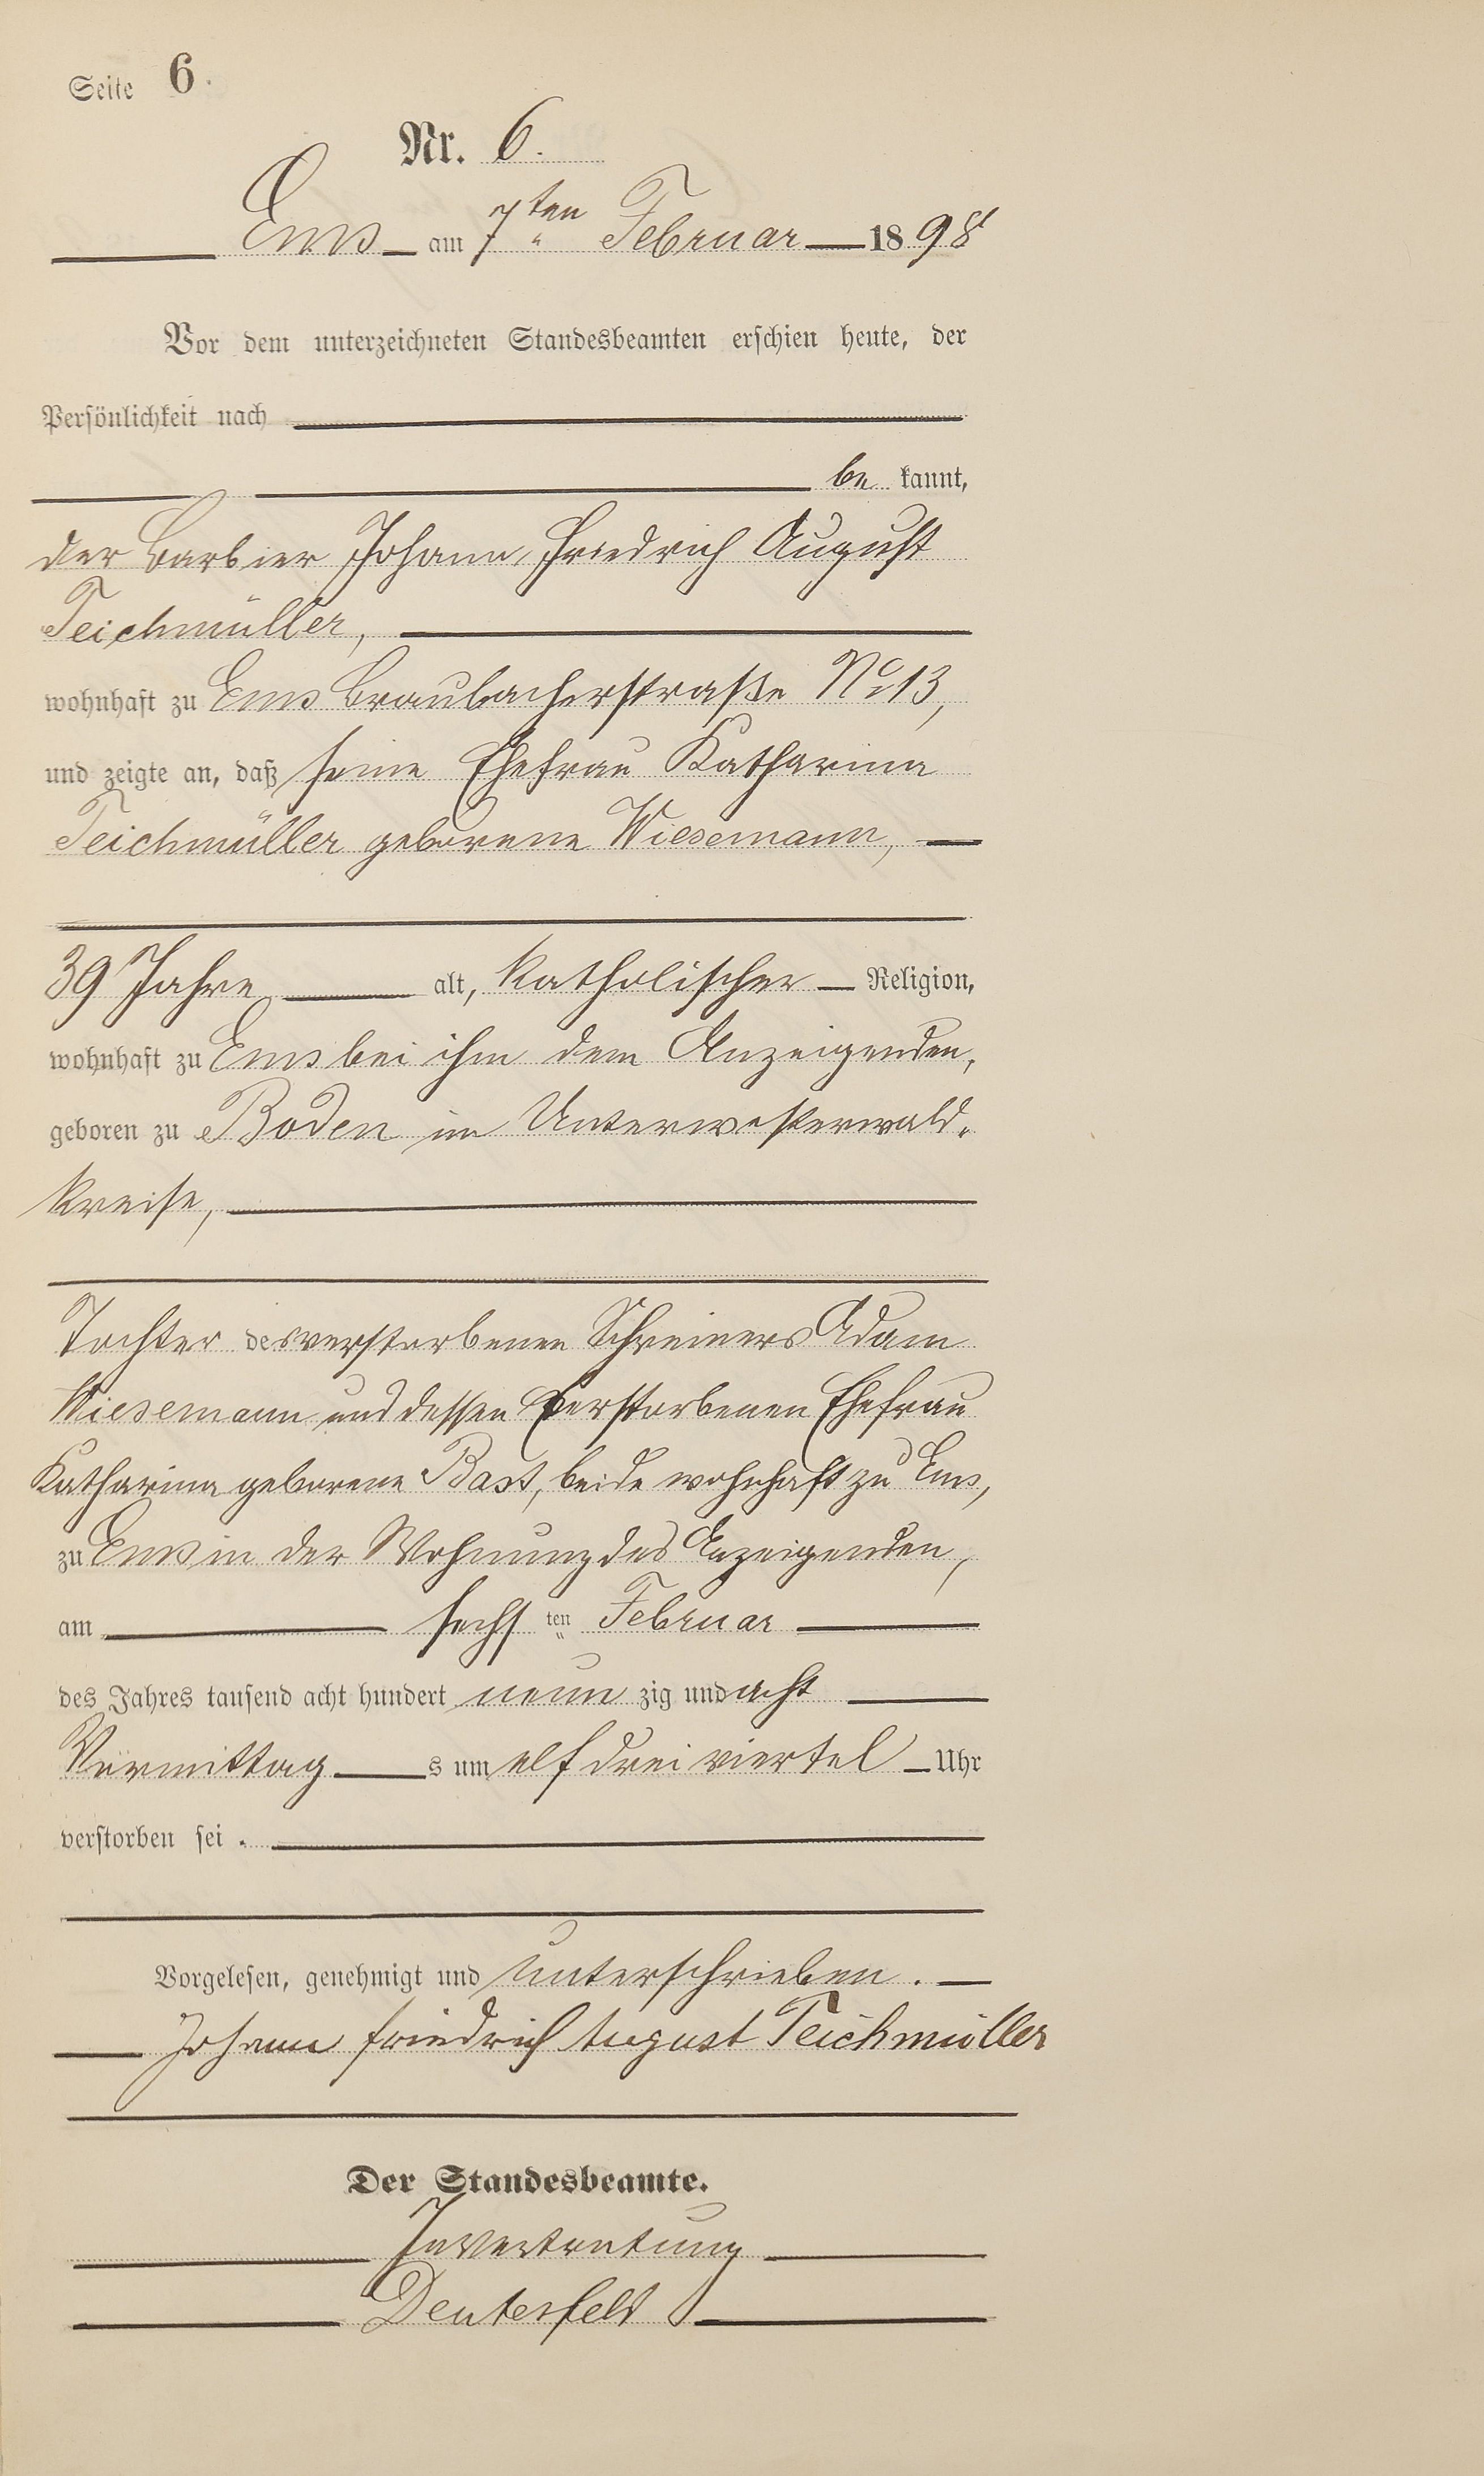 Seite 6.
Nr. 6.
Ems am 7ten Februar 1898
Vor dem unterzeichneten Standesbeamten erschien heute, der
Persönlichkeit nach
be kannt,
der Barbier Johann Friedrich August
Teichmüller,
wohnhaft zu Ems Braubacherstraße No 13,
und zeigte an, daß seine Ehefrau Katharina
Teichmüller geborene Wiesemann,
39 Jahre alt, katholischer Religion,
wohnhaft zu Ems bei ihm dem Anzeigenden,
geboren zu Boden im Unterwesterwald-
kreise,
Tochter des verstorbenen Schreiners Adam
Wiesemann und dessen verstorbenen Ehefrau
Katharina geborene Bast, beide wohnhaft zu Ems,
zu Ems in der Wohnung des Anzeigenden,
am sechs ten Februar
des Jahres tausend acht hundert neun zig und acht
Vormittag s um elf drei viertel Uhr
verstorben sei.
Vorgelesen, genehmigt und unterschrieben.
Johann Friedrich August Teichmüller
Der Standesbeamte.
In Vertretung